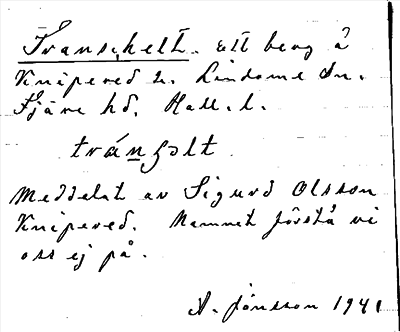 Transhelt. Ett berg å
Knipered 2. Lindome sn.
Fjäre hd. Hall. l.
tránhəlt
Meddelat av Sigurd Olsson
Knipered. Namnet förstå vi
oss ej på.
A. Jönsson 1941